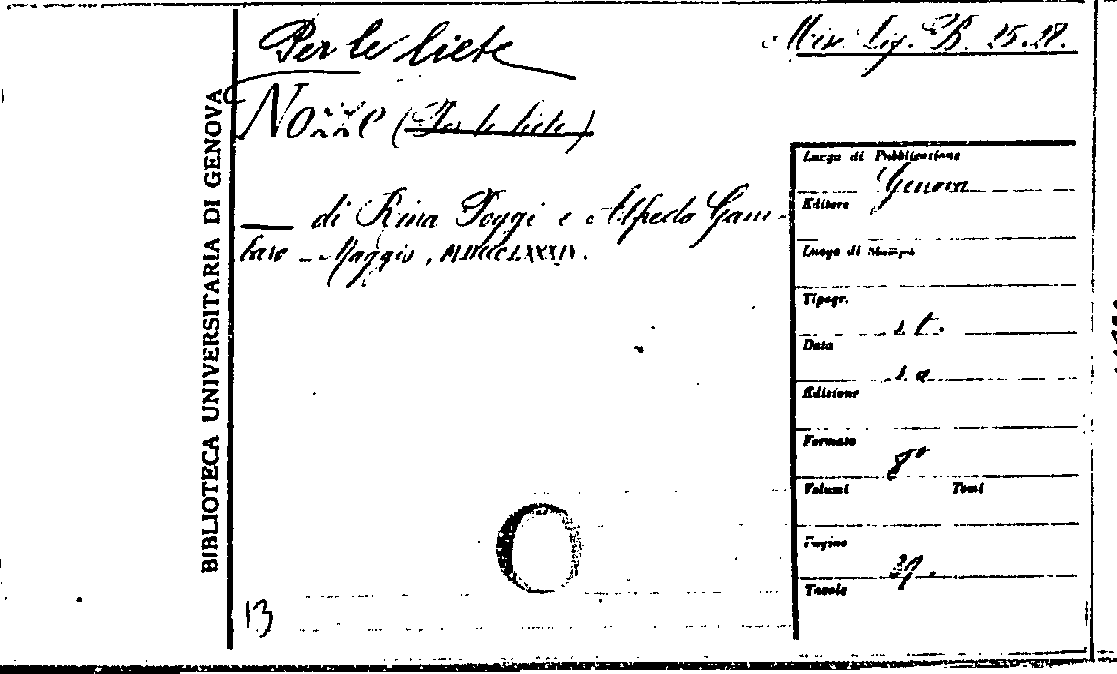 BIBLIOTECA UNIVERSITARIA DI GENOVA
Per le liete
Misc. Lig. B. 25.28.
Nozze (Per le liete)
— di Rina Poggi e Alfredo Gam-
baro - Maggio, MDCCCLXXXIV.
Luogo di Pubblicazione
Genova
Editore
Luogo di Stampa
Tipogr.
s. t.
Data
s. a
Edizione
Formato
8°
Volumi Tomi
Pagine
29.
Tavole
13